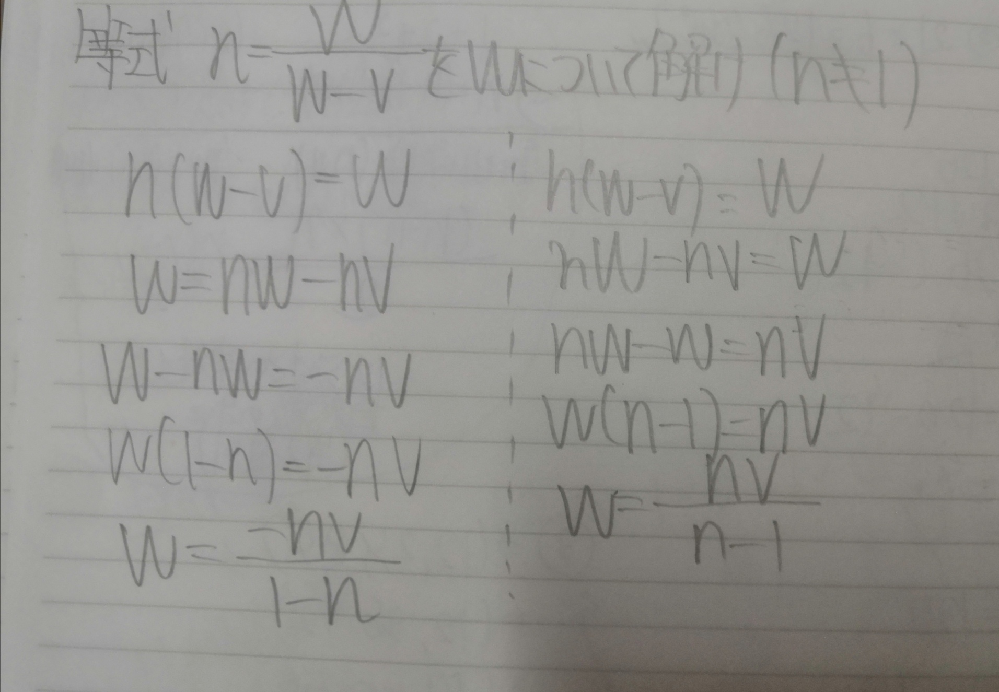 等式 n = W/(W-V) をWについて解け (n≠1)
n(W-V) = W
W = nW - nV
W - nW = -nV
W(1-n) = -nV
W = -nV/(1-n)
n(W-V) = W
nW - nV = W
nW - W = nV
W(n-1) = nV
W = nV/(n-1)